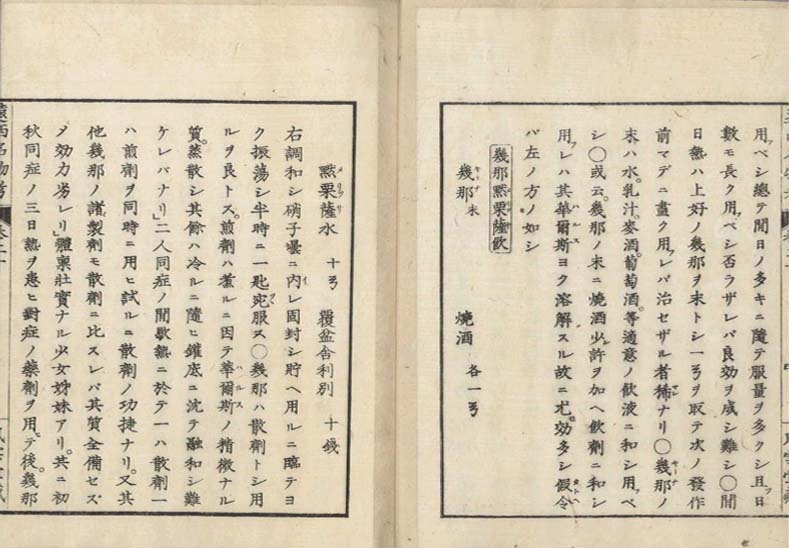 用フベシ總テ間日ノ多キニ隨テ服量ヲ多クシ且ツ日
數モ長ク用フベシ否ラザレバ良効ヲ成シ難シ〇間
日熱ハ上好ノ幾那ヲ末トシ一ヲ取テ次ノ發作
前マデニ盡ク用フレバ治セザル者稀ナリ〇幾那ノ
末ハ水。乳汁。麥酒。葡萄酒。等適意ノ飲液ニ和シ用フベ
シ〇或云。幾那ノ末ニ燒酒少許ヲ加ヘ飲劑ニ和シ
用フレハ其華爾斯ヨク溶解スル故ニ尤モ効多シ假令ヘ
バ左ノ方ノ如シ
幾那㸃栗薩飲
幾那末 燒酒 各一
㸃栗薩水 十 覆盆舎利別 十錢
右調和シ硝子壜ニ内レ固封シ貯ヘ用ルニ臨テヨ
ク振蕩シ半時ニ一匙宛服ス〇幾那ハ散劑トシ用
ルヲ良トス。煎劑ハ煮ルニ因テ華爾斯ノ精微ナル
質。蒸散シ其餘ハ冷ルニ隨ヒ鑵底ニ沈テ融和シ難
ケレバナリ」二人同症ノ間歇熱ニ於テ一ハ散劑一
ハ煎劑ヲ同時ニ用ヒ試ルニ散劑ノ功捷ナリ。又其
他幾那ノ諸製劑モ散劑ニ比スレバ其質全備セズ
メ効力劣レリ」體稟壯實ナル少女姊妹アリ。共ニ初
秋同症ノ三日熱ヲ患ヒ對症ノ藥劑ヲ用テ後。幾那